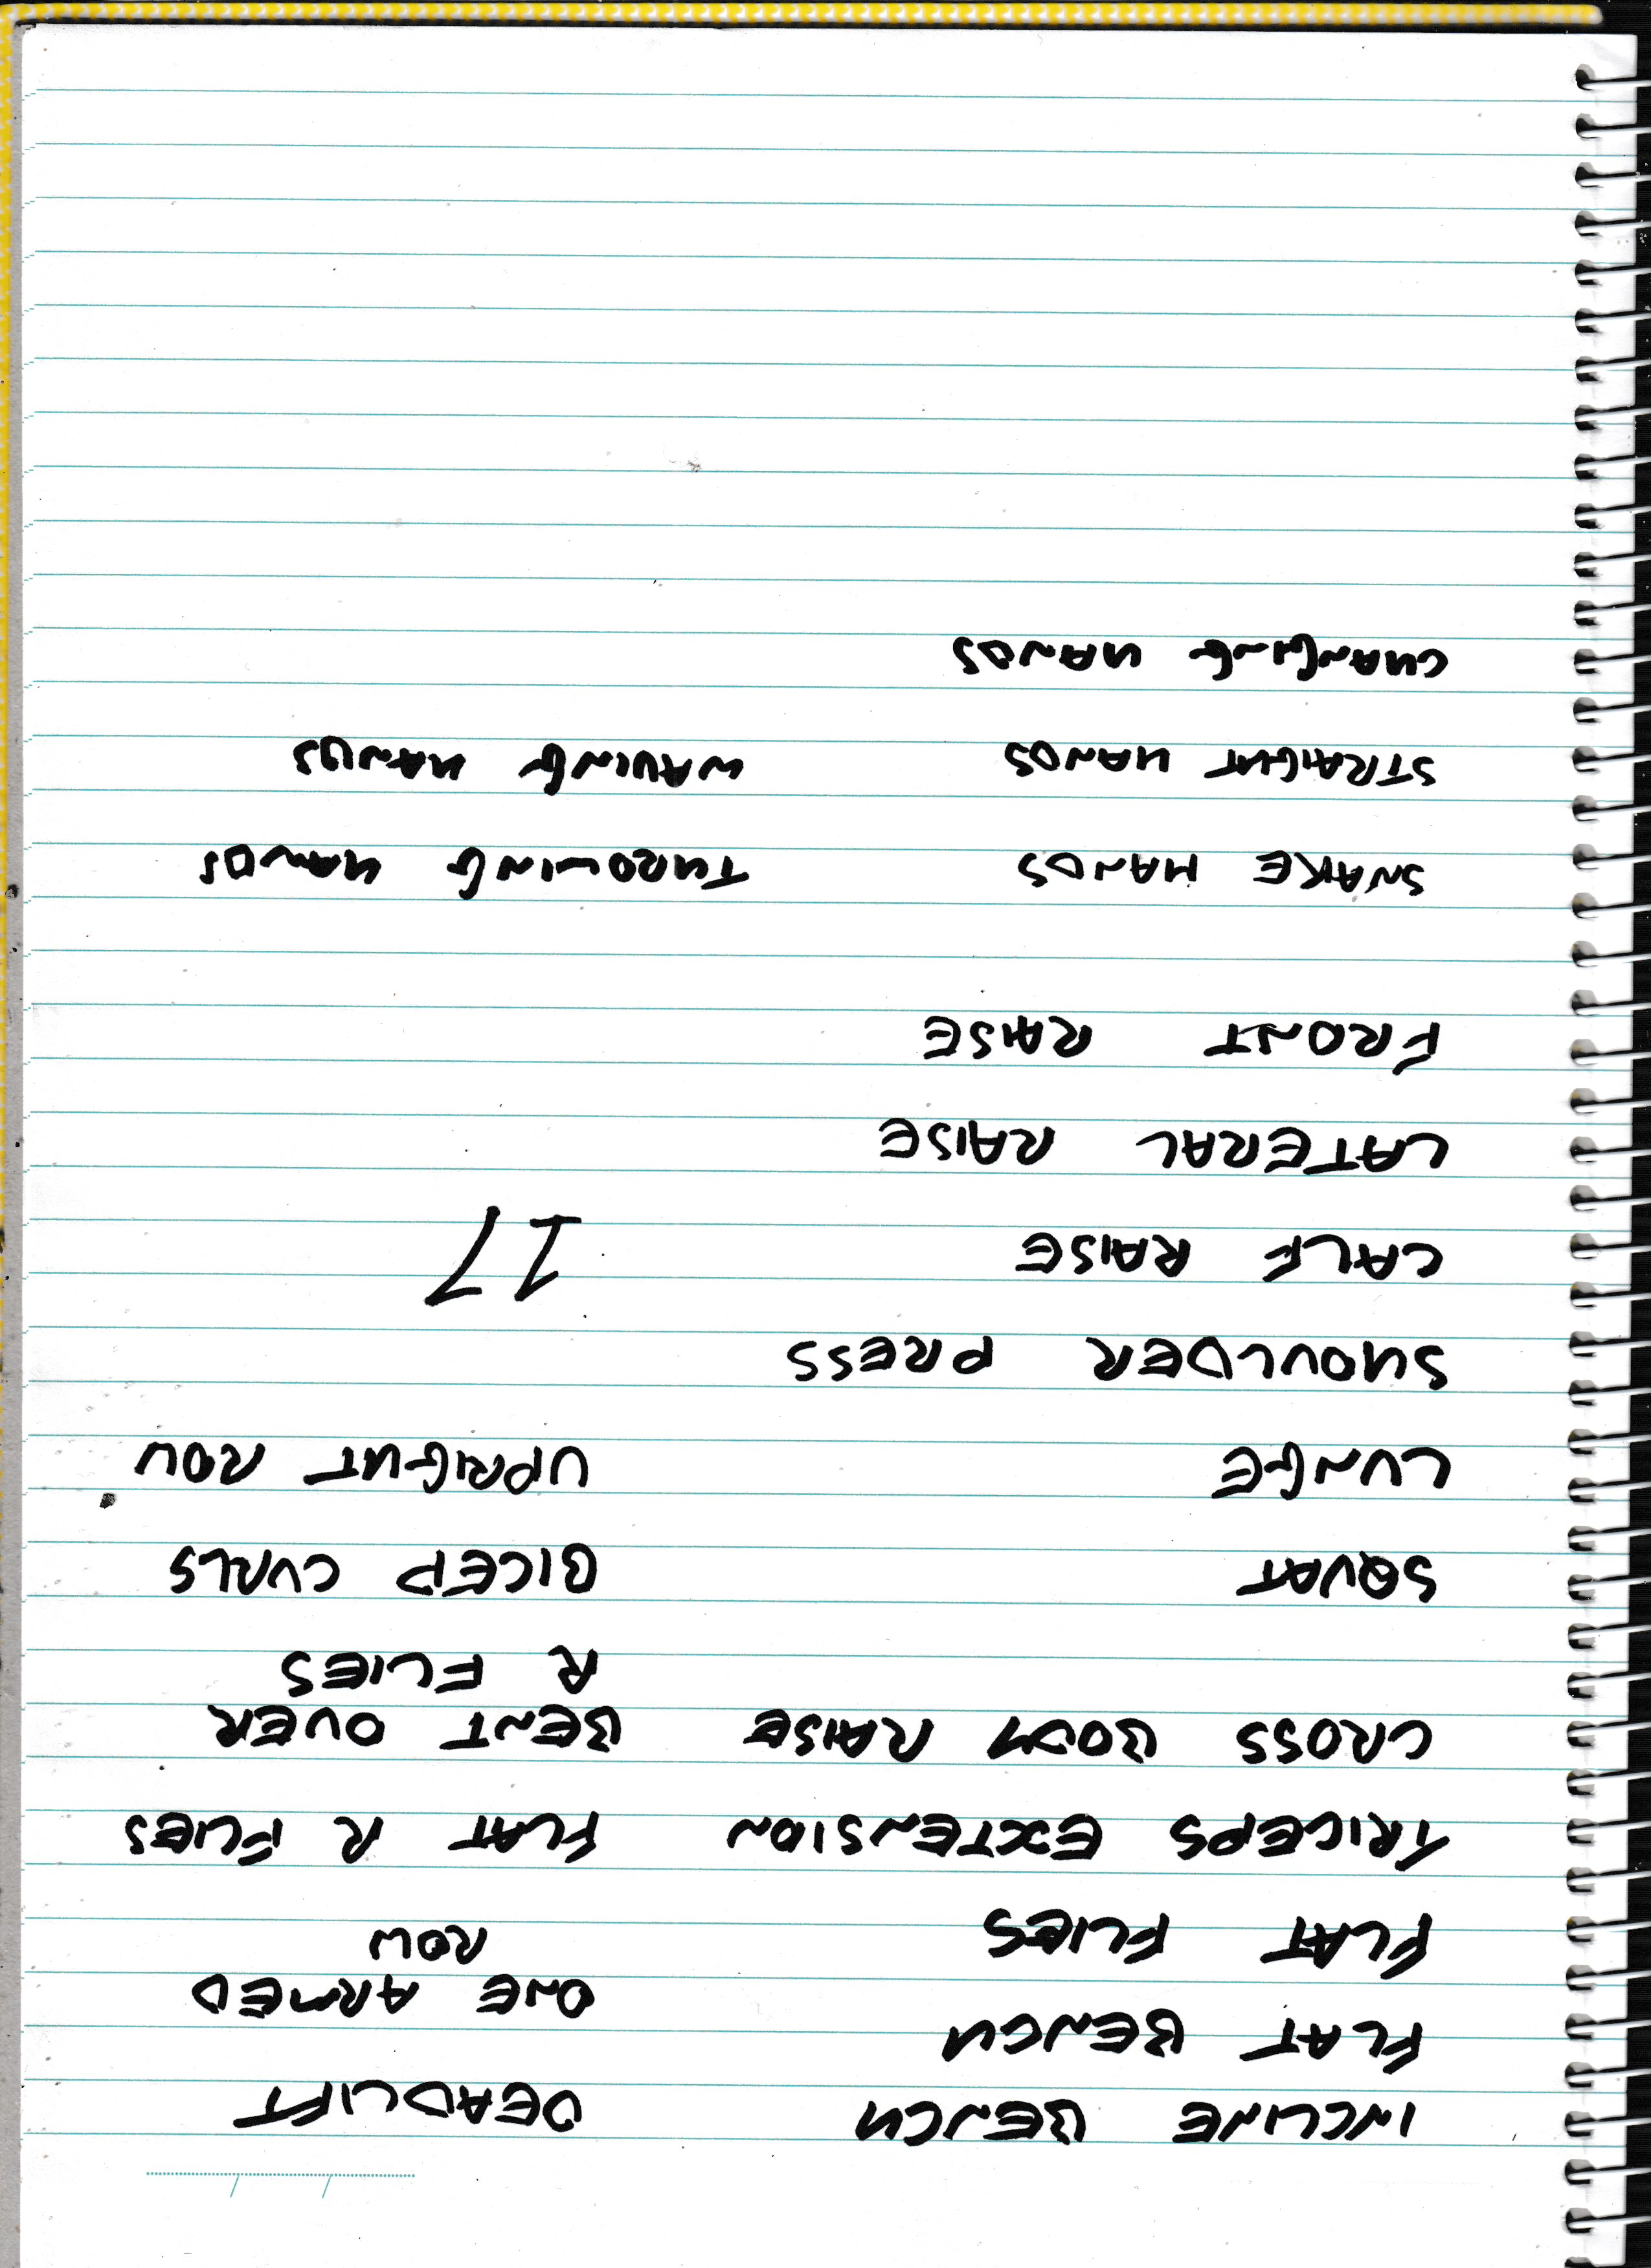 INCLINE BENCH
FLAT BENCH
FLAT FLIES
TRICEPS EXTENSION
CROSS BODY RAISE
SQUAT
LUNGE
SHOULDER PRESS
CALF RAISE
LATERAL RAISE
FRONT RAISE
DEADLIFT
ONE ARMED
ROW
FLAT R FLIES
BENT OVER
R FLIES
BICEP CURLS
UPRIGHT ROW
17
SNAKE HANDS
STRAIGHT HANDS
CHANGING HANDS
THROWING HANDS
WAVING HANDS